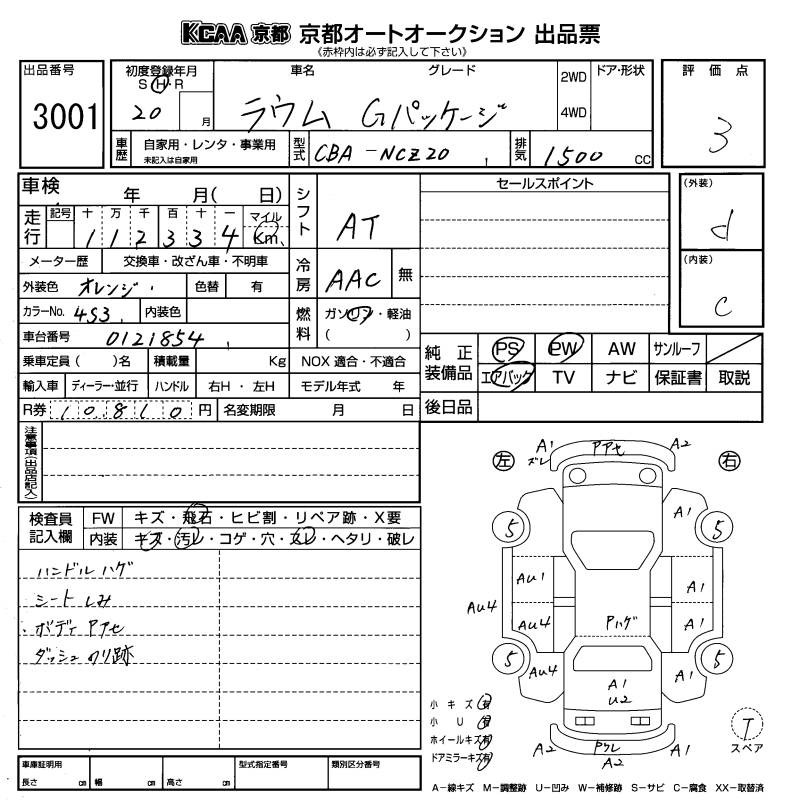 KCAA 京都 京都オートオークション 出品票
《赤枠内は必ず記入して下さい》
出品番号
3001
初度登録年月
S・H・R
20 月
車名 グレード
ラウム Gパッケージ
2WD
4WD
ドア・形状
評価点
3
車歴 自家用・レンタ・事業用
未記入は自家用
型式 CBA-NCZ20
排気 1500 CC
車検 年 月( 日)
走行 記号 十 万 千 百 十 一 マイル
1 1 2 3 3 4 Km
シフト AT
セールスポイント
(外装)
d
(内装)
C
メーター歴 交換車・改ざん車・不明車
外装色 オレンジ 色替 有
冷房 AAC 無
カラーNo. 4S3 内装色
燃料 ガソリン・軽油
( )
車台番号 0121854
乗車定員( )名 積載量 Kg NOX 適合・不適合
輸入車 ディーラー・並行 ハンドル 右H・左H モデル年式 年
R券 10,810 円 名変期限 月 日
純正装備品 PS PW AW サンルーフ
エアバック TV ナビ 保証書 取説
後日品
注意事項(出品店記入)
検査員記入欄 FW キズ・飛石・ヒビ割・リペア跡・X要
内装 キズ・汚レ・コゲ・穴・スレ・ヘタリ・破レ
ハンドル ハゲ
シート しみ
ボディ Pアセ
ダッシュ のり跡
左 右
A1 Pアセ A2
ズレ
5 A1 5
AU1 A1
AU4 AU4 Pハゲ A1
5 AU4 A1 5
A1
U2
A2 Pワレ A2
小キズ 有
小U 有
ホイールキズ 有
ドアミラーキズ 有
T
スペア
車庫証明用
長さ cm 幅 cm 高さ cm
型式指定番号 類別区分番号
A-線キズ M-調整跡 U-凹み W-補修跡 S-サビ C-腐食 XX-取替済